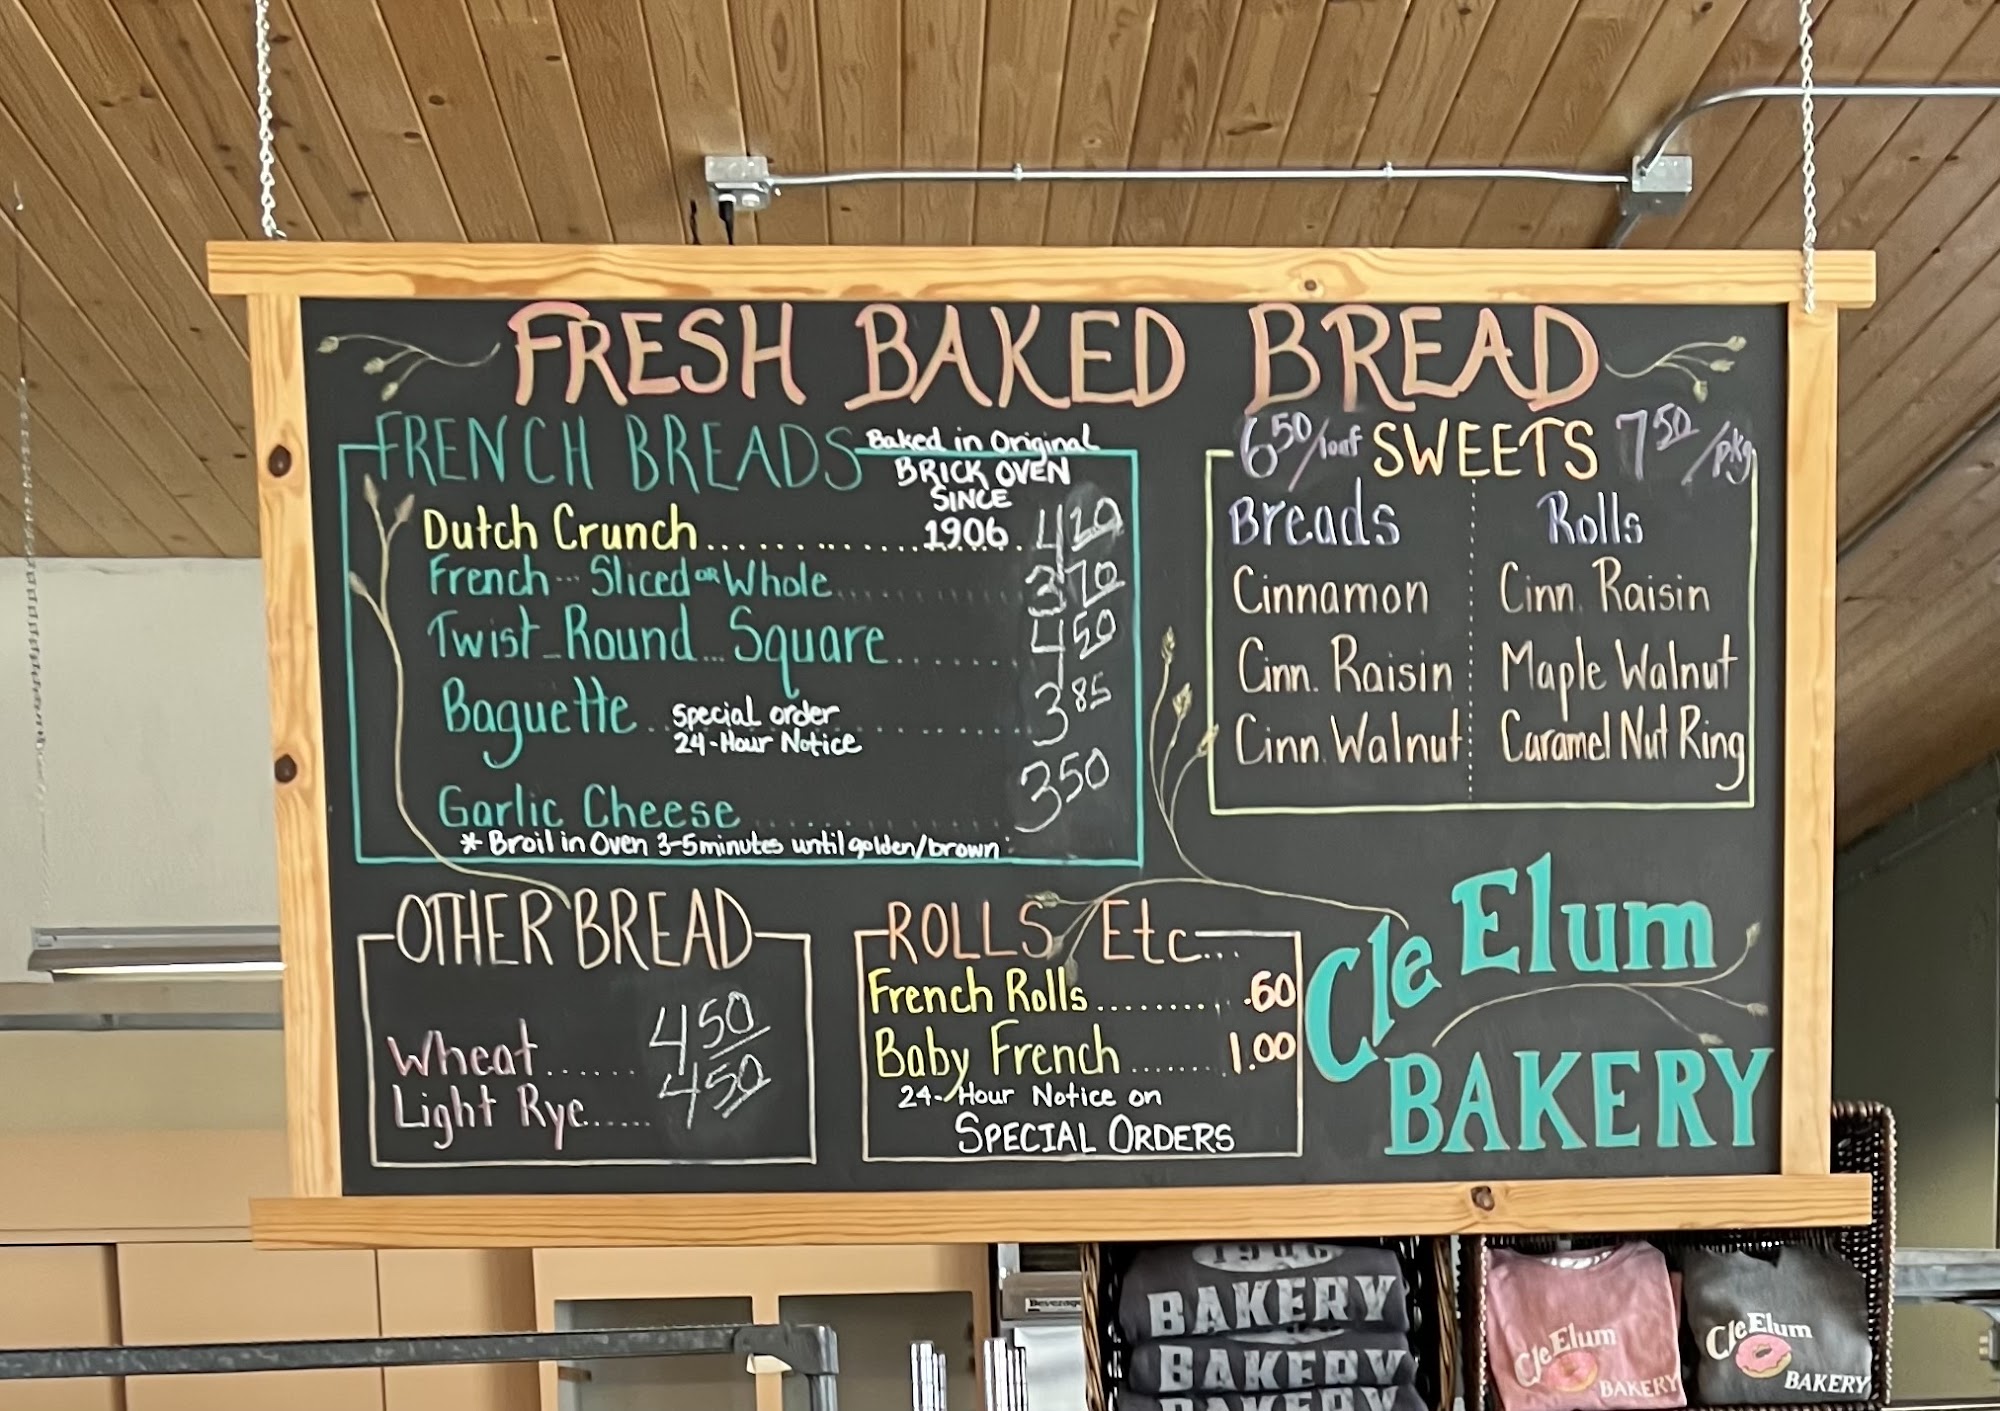 FRESH BAKED BREAD
FRENCH BREADS Baked in Original
BRICK OVEN
SINCE
1906
Dutch Crunch.................. 4 20
French... Sliced OR Whole............ 3 70
Twist Round... Square....... 4 50
Baguette............... 3 85
Special order
24-Hour Notice
Garlic Cheese............ 3 50
* Broil in Oven 3-5 minutes until golden/brown
6 50/loaf SWEETS 7 50/pkg
Breads Rolls
Cinnamon Cinn. Raisin
Cinn. Raisin Maple Walnut
Cinn. Walnut Caramel Nut Ring
OTHER BREAD
Wheat...... 4 50
Light Rye...... 4 50
ROLLS Etc...
French Rolls......... .60
Baby French....... 1.00
24-Hour Notice on
SPECIAL ORDERS
Cle Elum
BAKERY
Beverage
1906
BAKERY
BAKERY
BAKERY
Cle Elum
BAKERY
Cle Elum
BAKERY